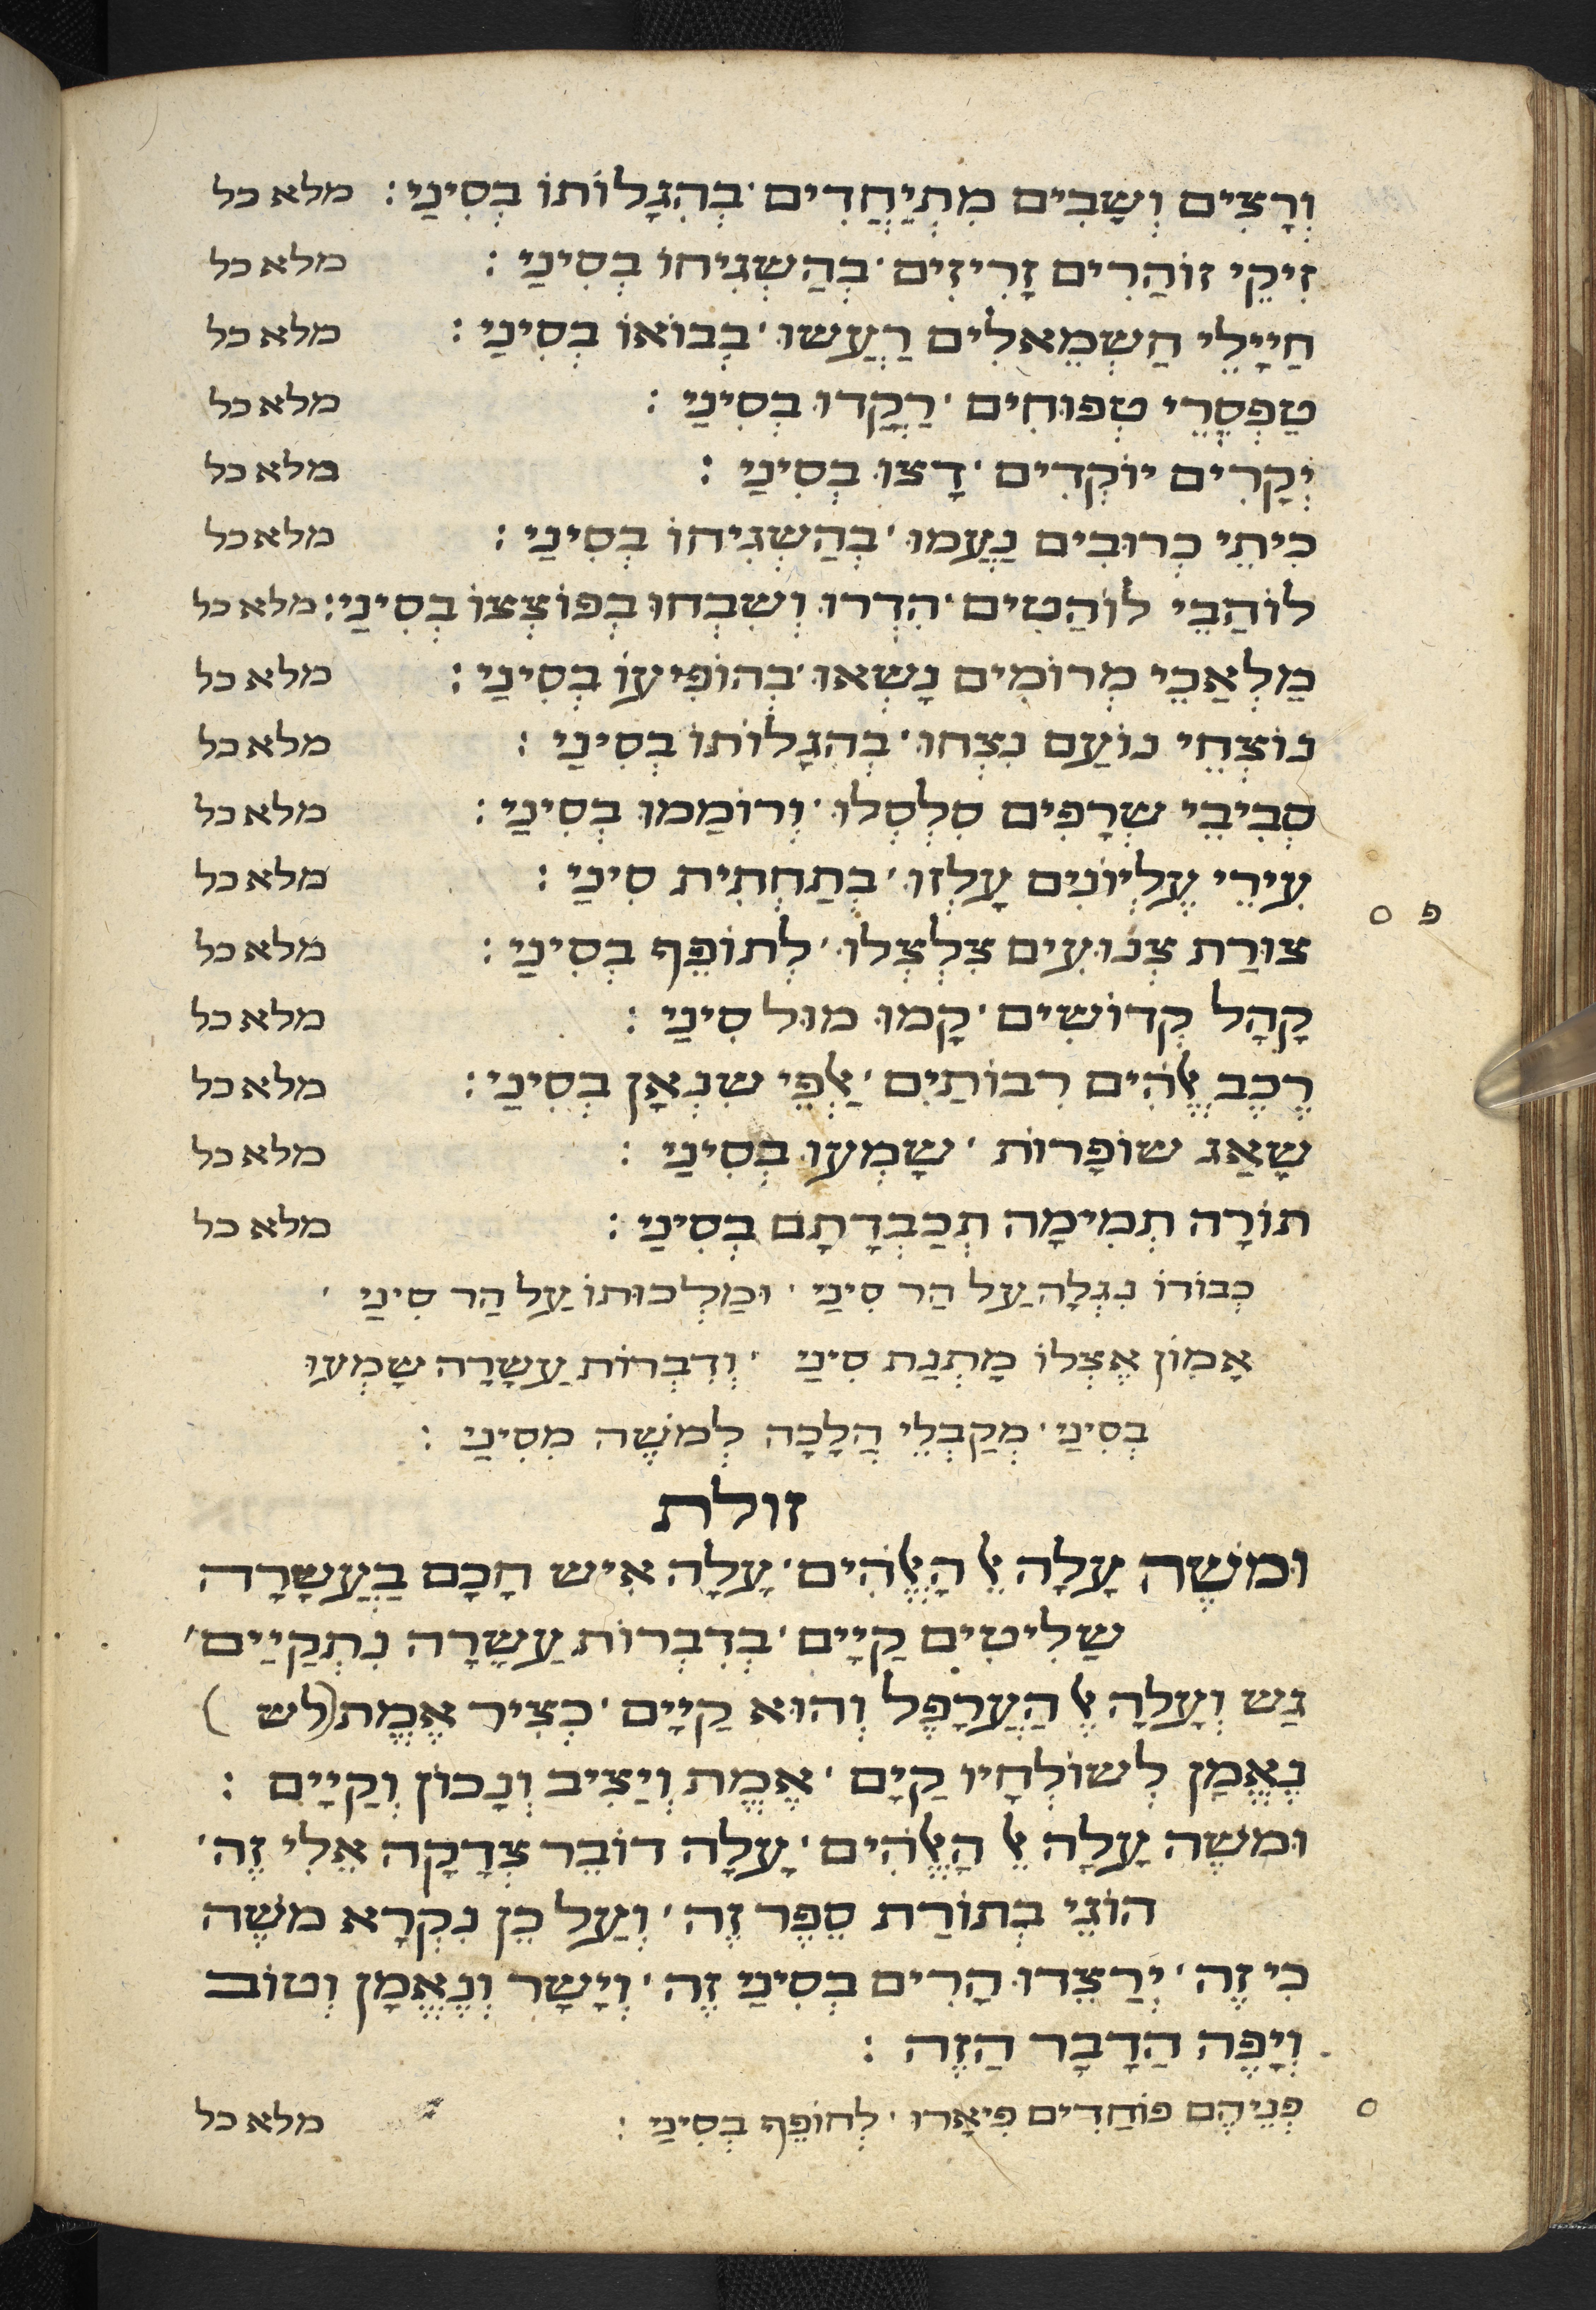 וְרָצִים וְשָׁבִים מִתְיַחֲדִים ׳ בְּהִגָּלוֹתוֹ בְסִינַי : מלא כל
זִיקֵי זוֹהֲרִים זָרִיזִים ׳ בְּהַשְׁגִּיחוֹ בְסִינַי : מלא כל
חַיָּילֵי חַשְׁמֵאלִים רָעֲשׁוּ ׳ בְּבוֹאוֹ בְסִינַי : מלא כל
טַפְסְרֵי טְפוּחִים ׳ רָקְדוּ בְסִינַי : מלא כל
יְקָרִים יוֹקְדִים ׳ דָּצוּ בְסִינַי : מלא כל
כִּיתֵי כְרוּבִים נָעֲמוּ ׳ בְּהַשְׁגִּיחוֹ בְסִינַי : מלא כל
לוֹהֲבֵי לוֹהֲטִים ׳ הִדְּרוּ וְשִׁבְּחוּ בְּפוֹצְצוֹ בְסִינַי : מלא כל
מַלְאֲכֵי מְרוֹמִים נָשְׂאוּ ׳ בְּהוֹפִיעוֹ בְסִינַי : מלא כל
נוֹצְחֵי נוֹעַם נִצְּחוּ ׳ בְּהִגָּלוֹתוֹ בְסִינַי : מלא כל
סְבִיבֵי שְׂרָפִים סִלְסְלוּ ׳ וְרוֹמְמוּ בְסִינַי : מלא כל
עִירֵי עֶלְיוֹנִים עָלְזוּ ׳ בְּתַחְתִּית סִינַי : מלא כל
פ ס
צוּרַת צְנוּעִים צִלְצְלוּ ׳ לְתוֹפֵף בְסִינַי : מלא כל
קְהַל קְדוֹשִׁים ׳ קָמוּ מוּל סִינַי : מלא כל
רֶכֶב אֱלֹהִים רִבּוֹתַיִם ׳ אַלְפֵי שִׁנְאָן בְסִינַי : מלא כל
שַׁאַג שׁוֹפָרוֹת ׳ שָׁמְעוּ בְסִינַי : מלא כל
תוֹרָה תְמִימָה תְּכַבְּדָתָם בְּסִינַי : מלא כל
כְּבוֹדוֹ נִגְלָה עַל הַר סִינַי ׳ וּמַלְכוּתוֹ עַל הַר סִינַי ׳
אָמוֹן אֶצְלוֹ מַתְּנַת סִינַי ׳ וְדִבְּרוֹת עֲשָׂרָה שָׁמְעוּ
בְסִינַי ׳ מְקַבְּלֵי הֲלָכָה לְמשֶׁה מִסִּינַי :
זולת
וּמשֶׁה עָלָה אֶל הָאֱלֹהִים ׳ עָלָה אִישׁ חָכָם בַּעֲשָׂרָה
שַׁלִּיטִים קַיָּים ׳ בְּדִבְּרוֹת עֲשָׂרָה נִתְקַיַּים ׳
נַּשׁ וְעָלָה אֶל הָעֲרָפֶל וְהוּא קַיָּים ׳ כְּצִיר אֱמֶת (לש )
נֶאֱמַן לְשׁוֹלְחָיו קַיָּם ׳ אֱמֶת וְיַצִּיב וְנָכוֹן וְקַיָּים :
וּמשֶׁה עָלָה אֶל הָאֱלֹהִים ׳ עָלָה דוֹבֵר צְדָקָה אֵלִי זֶה ׳
הוֹגֵי בְּתוֹרַת סֵפֶר זֶה ׳ וְעַל כֵּן נִקְרָא משֶׁה
כִּי זֶה ׳ יְרַצְּדוּ הָרִים בְּסִינַי זֶה ׳ וְיָשָׁר וְנֶאֱמָן וְטוֹב
וְיָפֶה הַדָּבָר הַזֶּה :
ס פְּנֵיהֶם פּוֹחֲדִים פִּיאֲרוּ ׳ לְחוֹפֵף בְּסִינַי : מלא כל